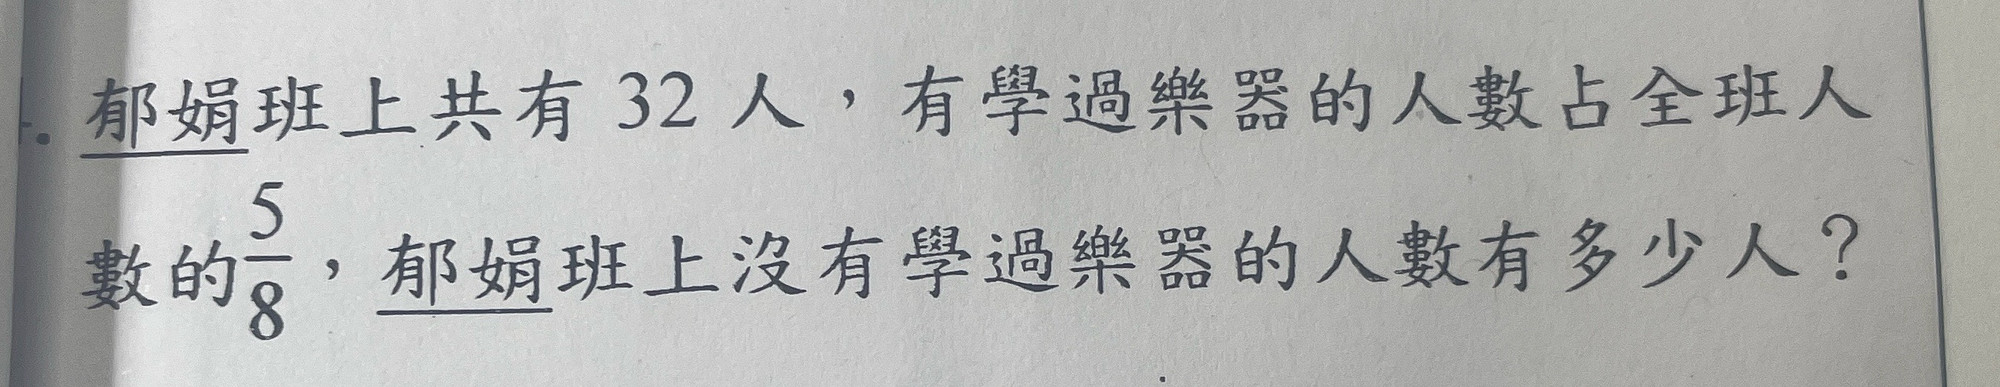 郁娟班上共有 32 人，有學過樂器的人數占全班人
數的5/8，郁娟班上沒有學過樂器的人數有多少人？